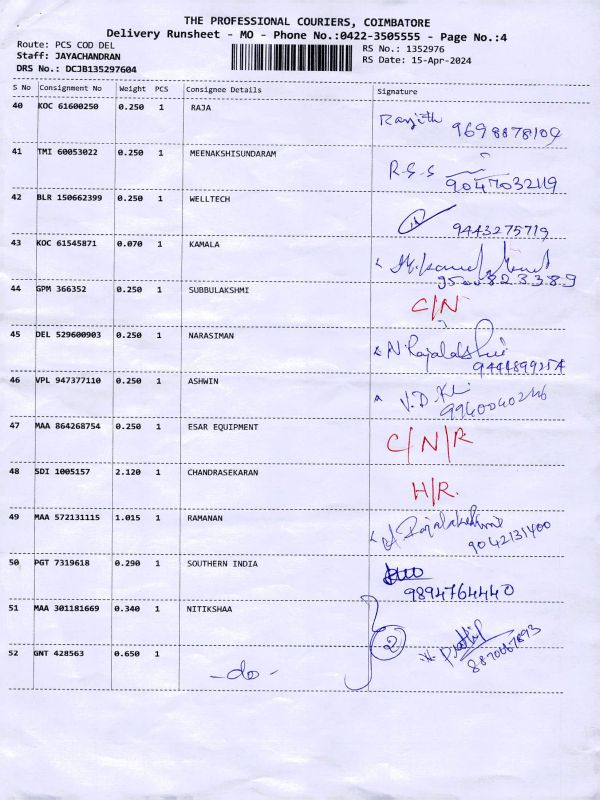 THE PROFESSIONAL COURIERS, COIMBATORE
Delivery Runsheet - MO - Phone No.:0422-3505555 - Page No.:4
Route: PCS COD DEL
RS No.: 1352976
Staff: JAYACHANDRAN
RS Date: 15-Apr-2024
DRS No.: DCJB135297604
S No Consignment No Weight PCS Consignee Details Signature
40 KOC 61600250 0.250 1 RAJA
Ranjith 9698878104
41 TMI 60053022 0.250 1 MEENAKSHISUNDARAM
R.S.S
9047032119
42 BLR 150662399 0.250 1 WELLTECH
9443275719
43 KOC 61545871 0.070 1 KAMALA
9500823389
44 GPM 366352 0.250 1 SUBBULAKSHMI
C/N
45 DEL 529600903 0.250 1 NARASIMAN
N. Rajalakshmi
9444899254
46 VPL 947377110 0.250 1 ASHWIN
V.D.
9940040246
47 MAA 864268754 0.250 1 ESAR EQUIPMENT
C/N/R
48 SDI 1005157 2.120 1 CHANDRASEKARAN
H/R.
49 MAA 572131115 1.015 1 RAMANAN
Rajalakshmi
9042131400
50 PGT 7319618 0.290 1 SOUTHERN INDIA
9894764440
51 MAA 301181669 0.340 1 NITIKSHAA
2
52 GNT 428563 0.650 1
-do-
Prathip
8870067893